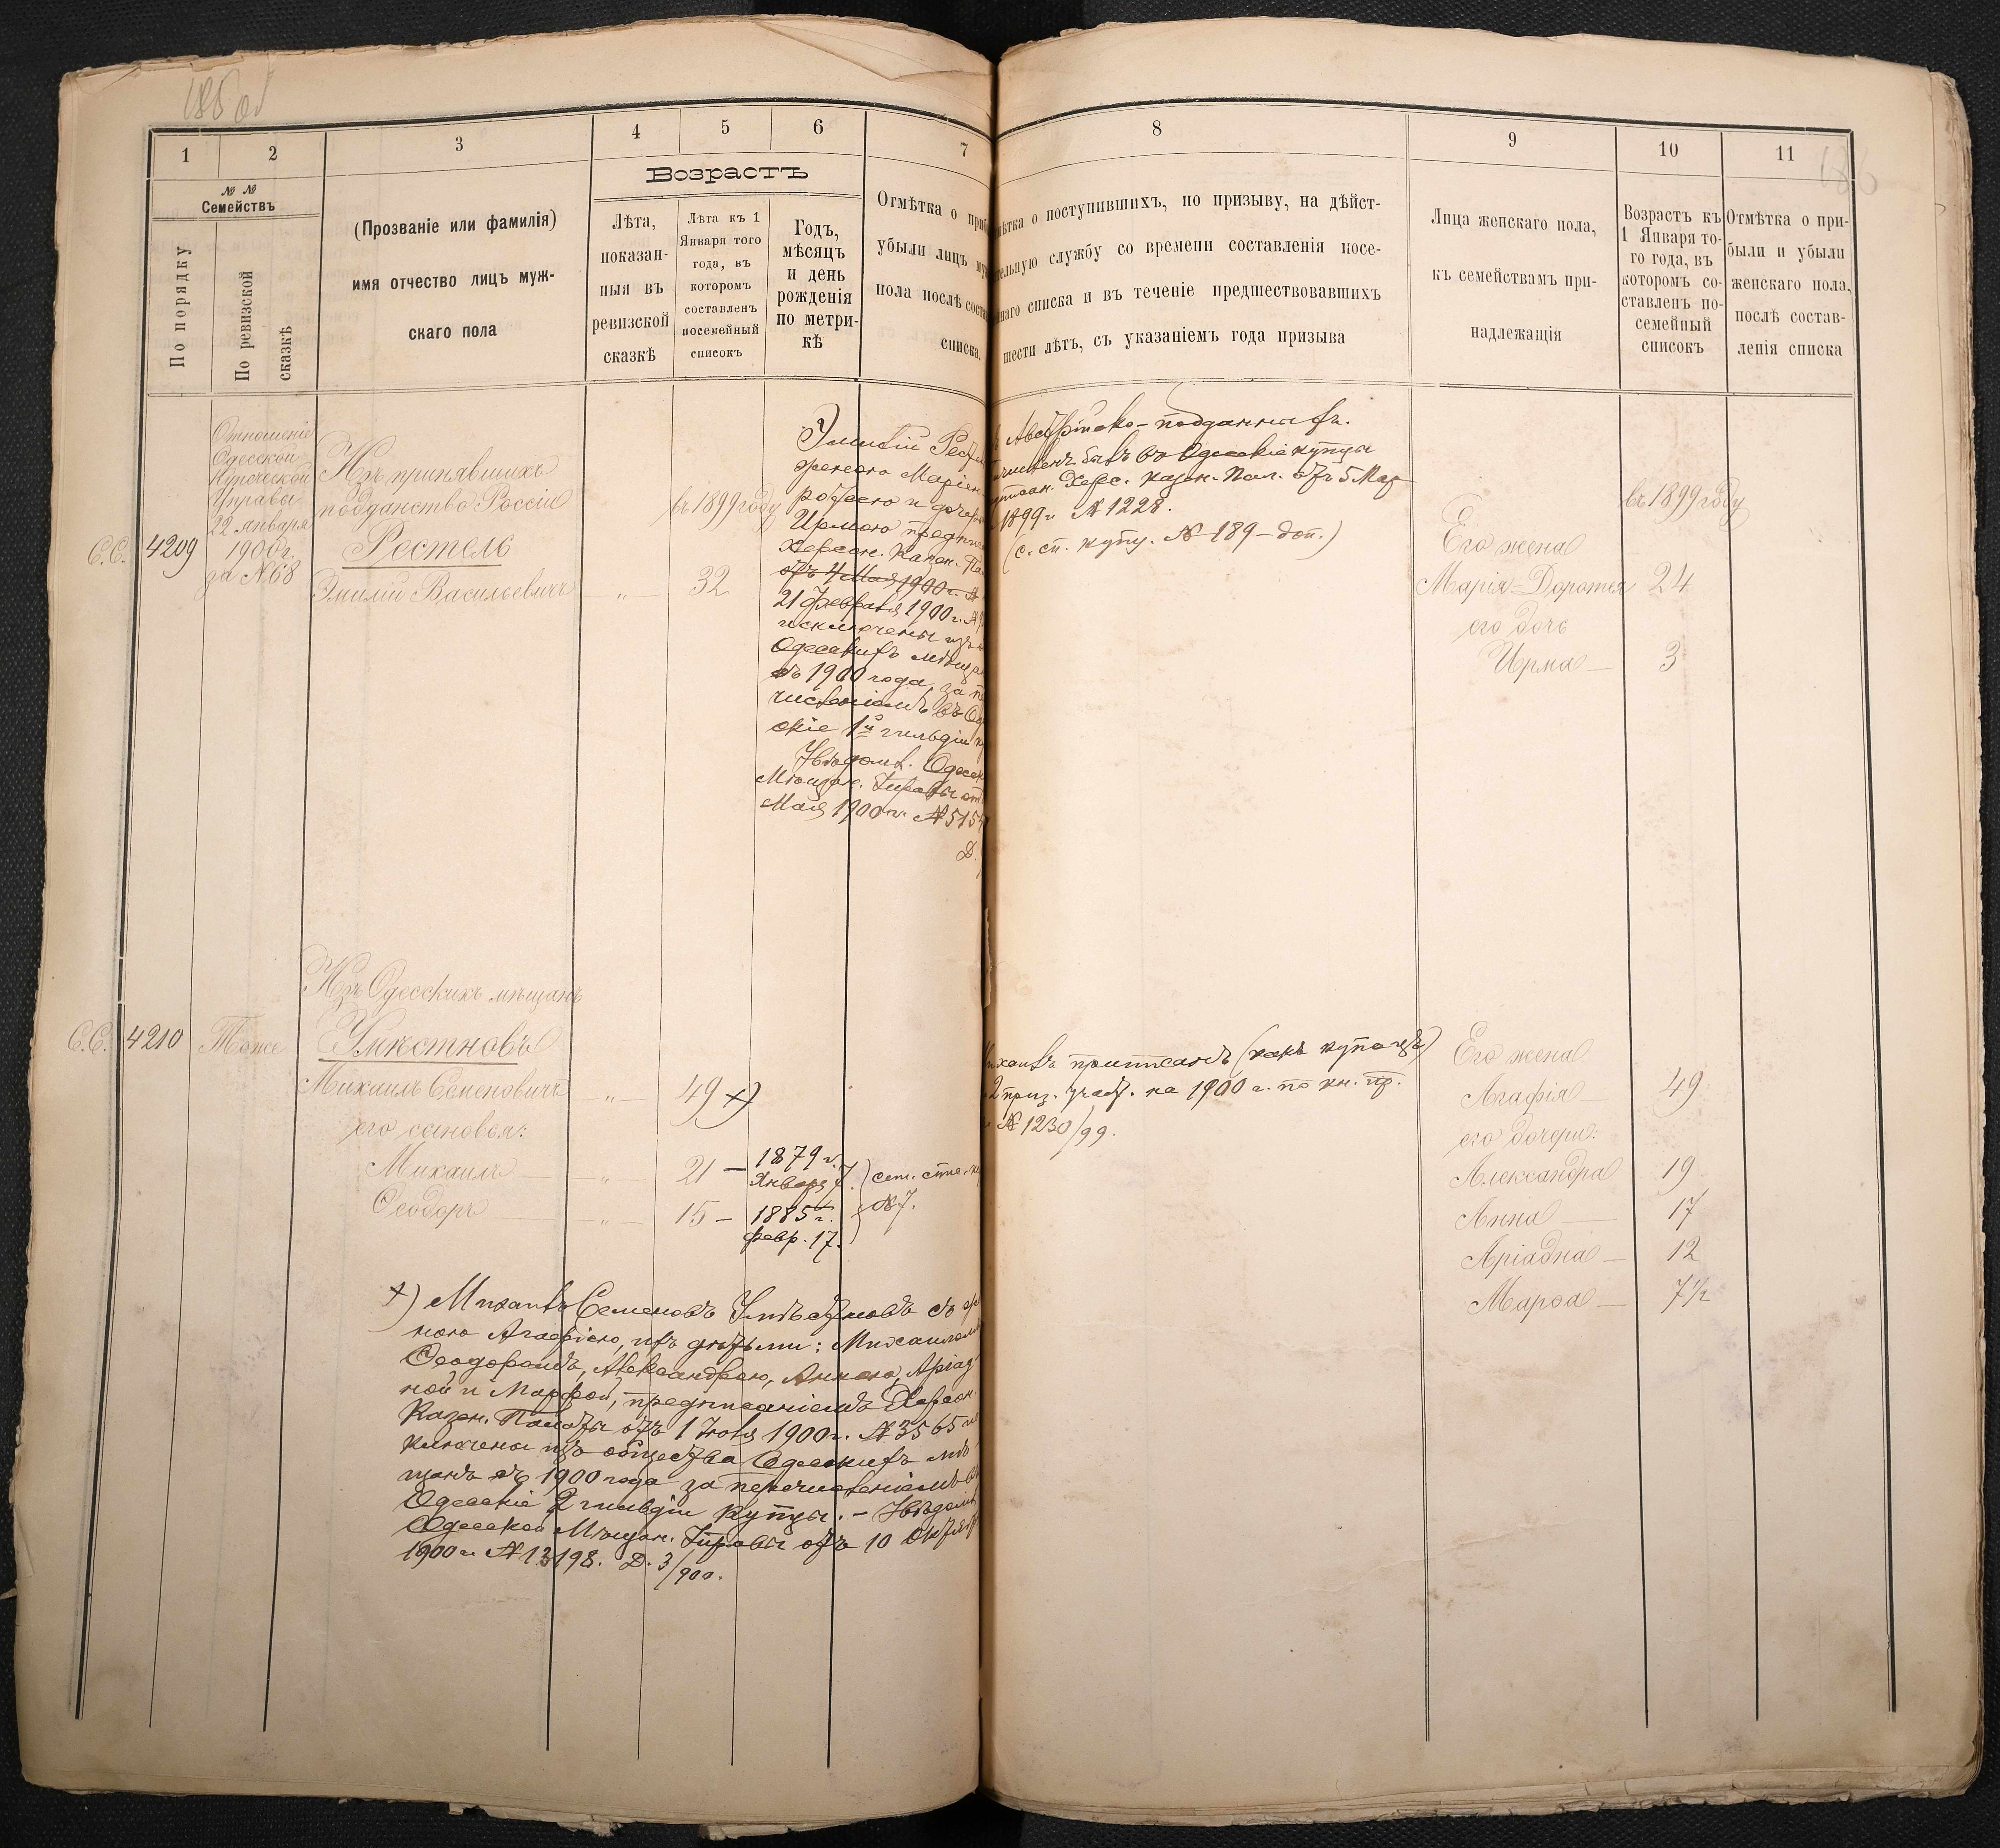 185 об
1
2
3
4
5
6
7
№ №
Семействъ
По порядку
По ревизской
сказкѣ
(Прозваніе или фамилія)
имя отчество лицъ муж-
скаго пола
Возрастъ
Лѣта,
показан-
ныя въ
ревизской
сказкѣ
Лѣта къ 1
Января того
года, въ
которомъ
составленъ
посемейный
списокъ
Годъ,
мѣсяцъ
и день
рожденія
по метри-
кѣ
Отмѣтка о приб
убыли лицъ му
пола послѣ соста
списка.
С.С.
4209
Отношеніе
Одесской
Купеческой
Управы
22 января
1900 г.
за № 68
Изъ принявшихъ
подданство Россіи
Рестель
Эмилій Васильевичъ
"
въ 1899 году
32
Эмилій Рест
женою Маріею-
ротеею и дочерью
Ирмою предпис
Херсон. Казен. Па
отъ 4 Мая 1900 г. №
21 февраля 1900 г. №
исключены изъ
Одесскихъ мѣщан
съ 1900 года, за пе
численіемъ въ Оде
скіе 1й гильдіи к
Увѣдомл. Одесск
Мѣщан. Управы от
Мая 1900 г. № 515
Д.
С.С.
4210
Тоже
Изъ Одесскихъ мѣщанъ
Умѣстновъ
Михаилъ Семеновичъ
"
49 х)
его сыновья:
Михаилъ
"
21 —
1879 г.
Января 7.
Ѳеодоръ
"
15 —
1885 г.
февр. 17.
№ 7.
х) Михаилъ Семеновъ Умѣстновъ съ же
ною Агафіею, и съ дѣтьми: Михаиломъ
Ѳеодоромъ, Александрою, Анною, Аріад
ной и Марфой, предписаніемъ Херсон
Казен. Палаты отъ 1 Іюля 1900 г. № 3565 ис
ключены изъ общества Одесскихъ мѣ
щанъ съ 1900 года за перечисленіемъ въ
Одесскіе 2 гильдіи купцы. – Увѣдомл
Одесской Мѣщан. Управы отъ 10 Октяб
1900 г. № 13198. Д. 3/900.
8
9
10
11
186
мѣтка о поступившихъ, по призыву, на дѣйст-
тельную службу со времени составленія посе-
йнаго списка и въ теченіе предшествовавшихъ
шести лѣтъ, съ указаніемъ года призыва
Лица женскаго пола,
къ семействамъ при-
надлежащія
Возрастъ къ
1 Января то-
го года, въ
которомъ со-
ставленъ по-
семейный
списокъ
Отмѣтка о при-
были и убыли
женскаго пола,
послѣ состав-
ленія списка
Австрійско-подданныхъ.
численъ былъ въ Одесскіе купцы
Херс. Казен. Пал. отъ 5 Мар
1899 г. № 1228.
(с. сп. купц. № 189 – доп.)
въ 1899 году
Его жена
Марія-Доротея 24
его дочь
Ирма — 3
Михаилъ приписанъ (какъ купецъ)
2 приз. участ. на 1900 г. по кн. пр.
№ 1230/99.
Его жена
Агафія — 49
его дочери:
Александра 19
Анна — 17
Аріадна — 12
Марѳа — 7½